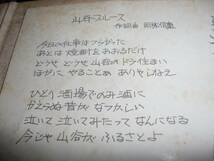 山谷ブルース
作詞曲 岡林信康
今日の仕事はつらかった
あとは焼酎をあおるだけ
どうせ どうせ山谷のドヤ住まい
ほかに やることぁ ありゃしねえ
ひとり酒場でのみ酒に
かえらぬ昔が なつかしい
泣いて泣いてみたって なんになる
今じゃ山谷が ふるさとよ